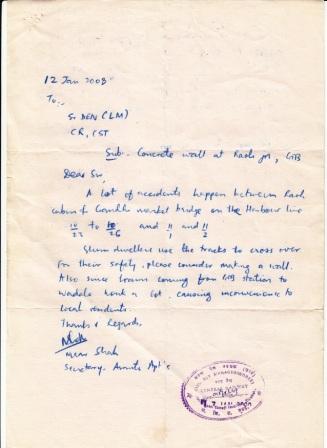 12 Jan 2008
To,-
Sr DEN (LM)
CR, CST
Sub:- Concrete wall at Raoli jn, GTB
Dear Sir,
A lot of accidents happen between Raoli
cabin & Gandhi market bridge on the Harbour line
to and 11/1 and 11/2
Slum dwellers use the tracks to cross over
For their safety, please consider making a wall.
Also since trains coming from GTB station to
Wadala honk a lot, causing inconvenience to
local residents.
Thanks & Regards,
Shah
Secretary. Amrita Apt's
CENTRAL RAILWAY